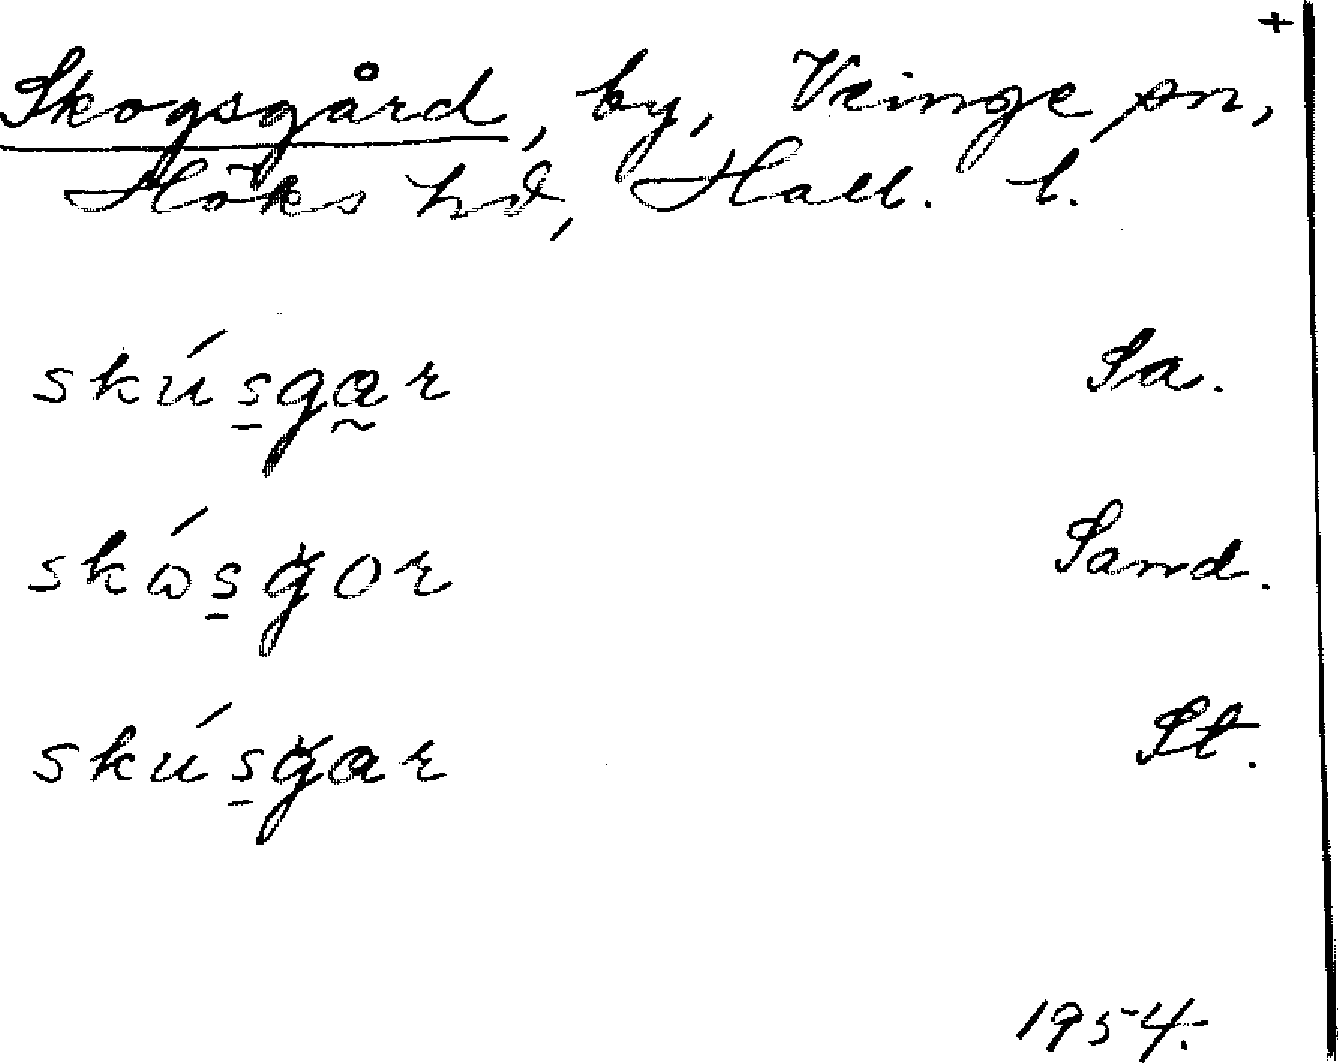 +
Skogsgård, by, Veinge sn,
Höks hd, Hall. l.
skúsgar Sa.
skósgor Sand.
skúsgar St.
1954.